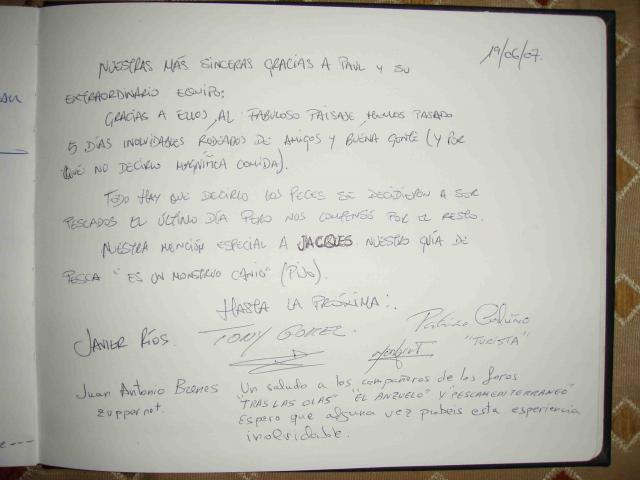 19/06/07.
NUESTRAS MÁS SINCERAS GRACIAS A PAUL Y SU
EXTRAORDINARIO EQUIPO:
GRACIAS A ELLOS, AL FABULOSO PAISAJE, HEMOS PASADO
5 DÍAS INOLVIDABLES RODEADOS DE AMIGOS Y BUENA GENTE (Y POR
QUÉ NO DECIRLO MAGNÍFICA COMIDA).
TODO HAY QUE DECIRLO LOS PECES SE DECIDIERON A SER
PESCADOS EL ÚLTIMO DÍA PERO NOS COMPENSÓ POR EL RESTO.
NUESTRA MENCIÓN ESPECIAL A JACQUES NUESTRO GUÍA DE
PESCA "ES UN MONSTRUO COÑIO" (PIJO).
HASTA LA PRÓXIMA:.
JAVIER RÍOS. TONY GOMEZ. Patricio
"TURISTA"
Juan Antonio Brenes
zuppornot.
Un saludo a los compañeros de los foros
"TRAS LAS OLAS" "EL ANZUELO" Y "PESCAMEDITERRANEO"
Espero que alguna vez probeis esta experiencia
inolvidable.